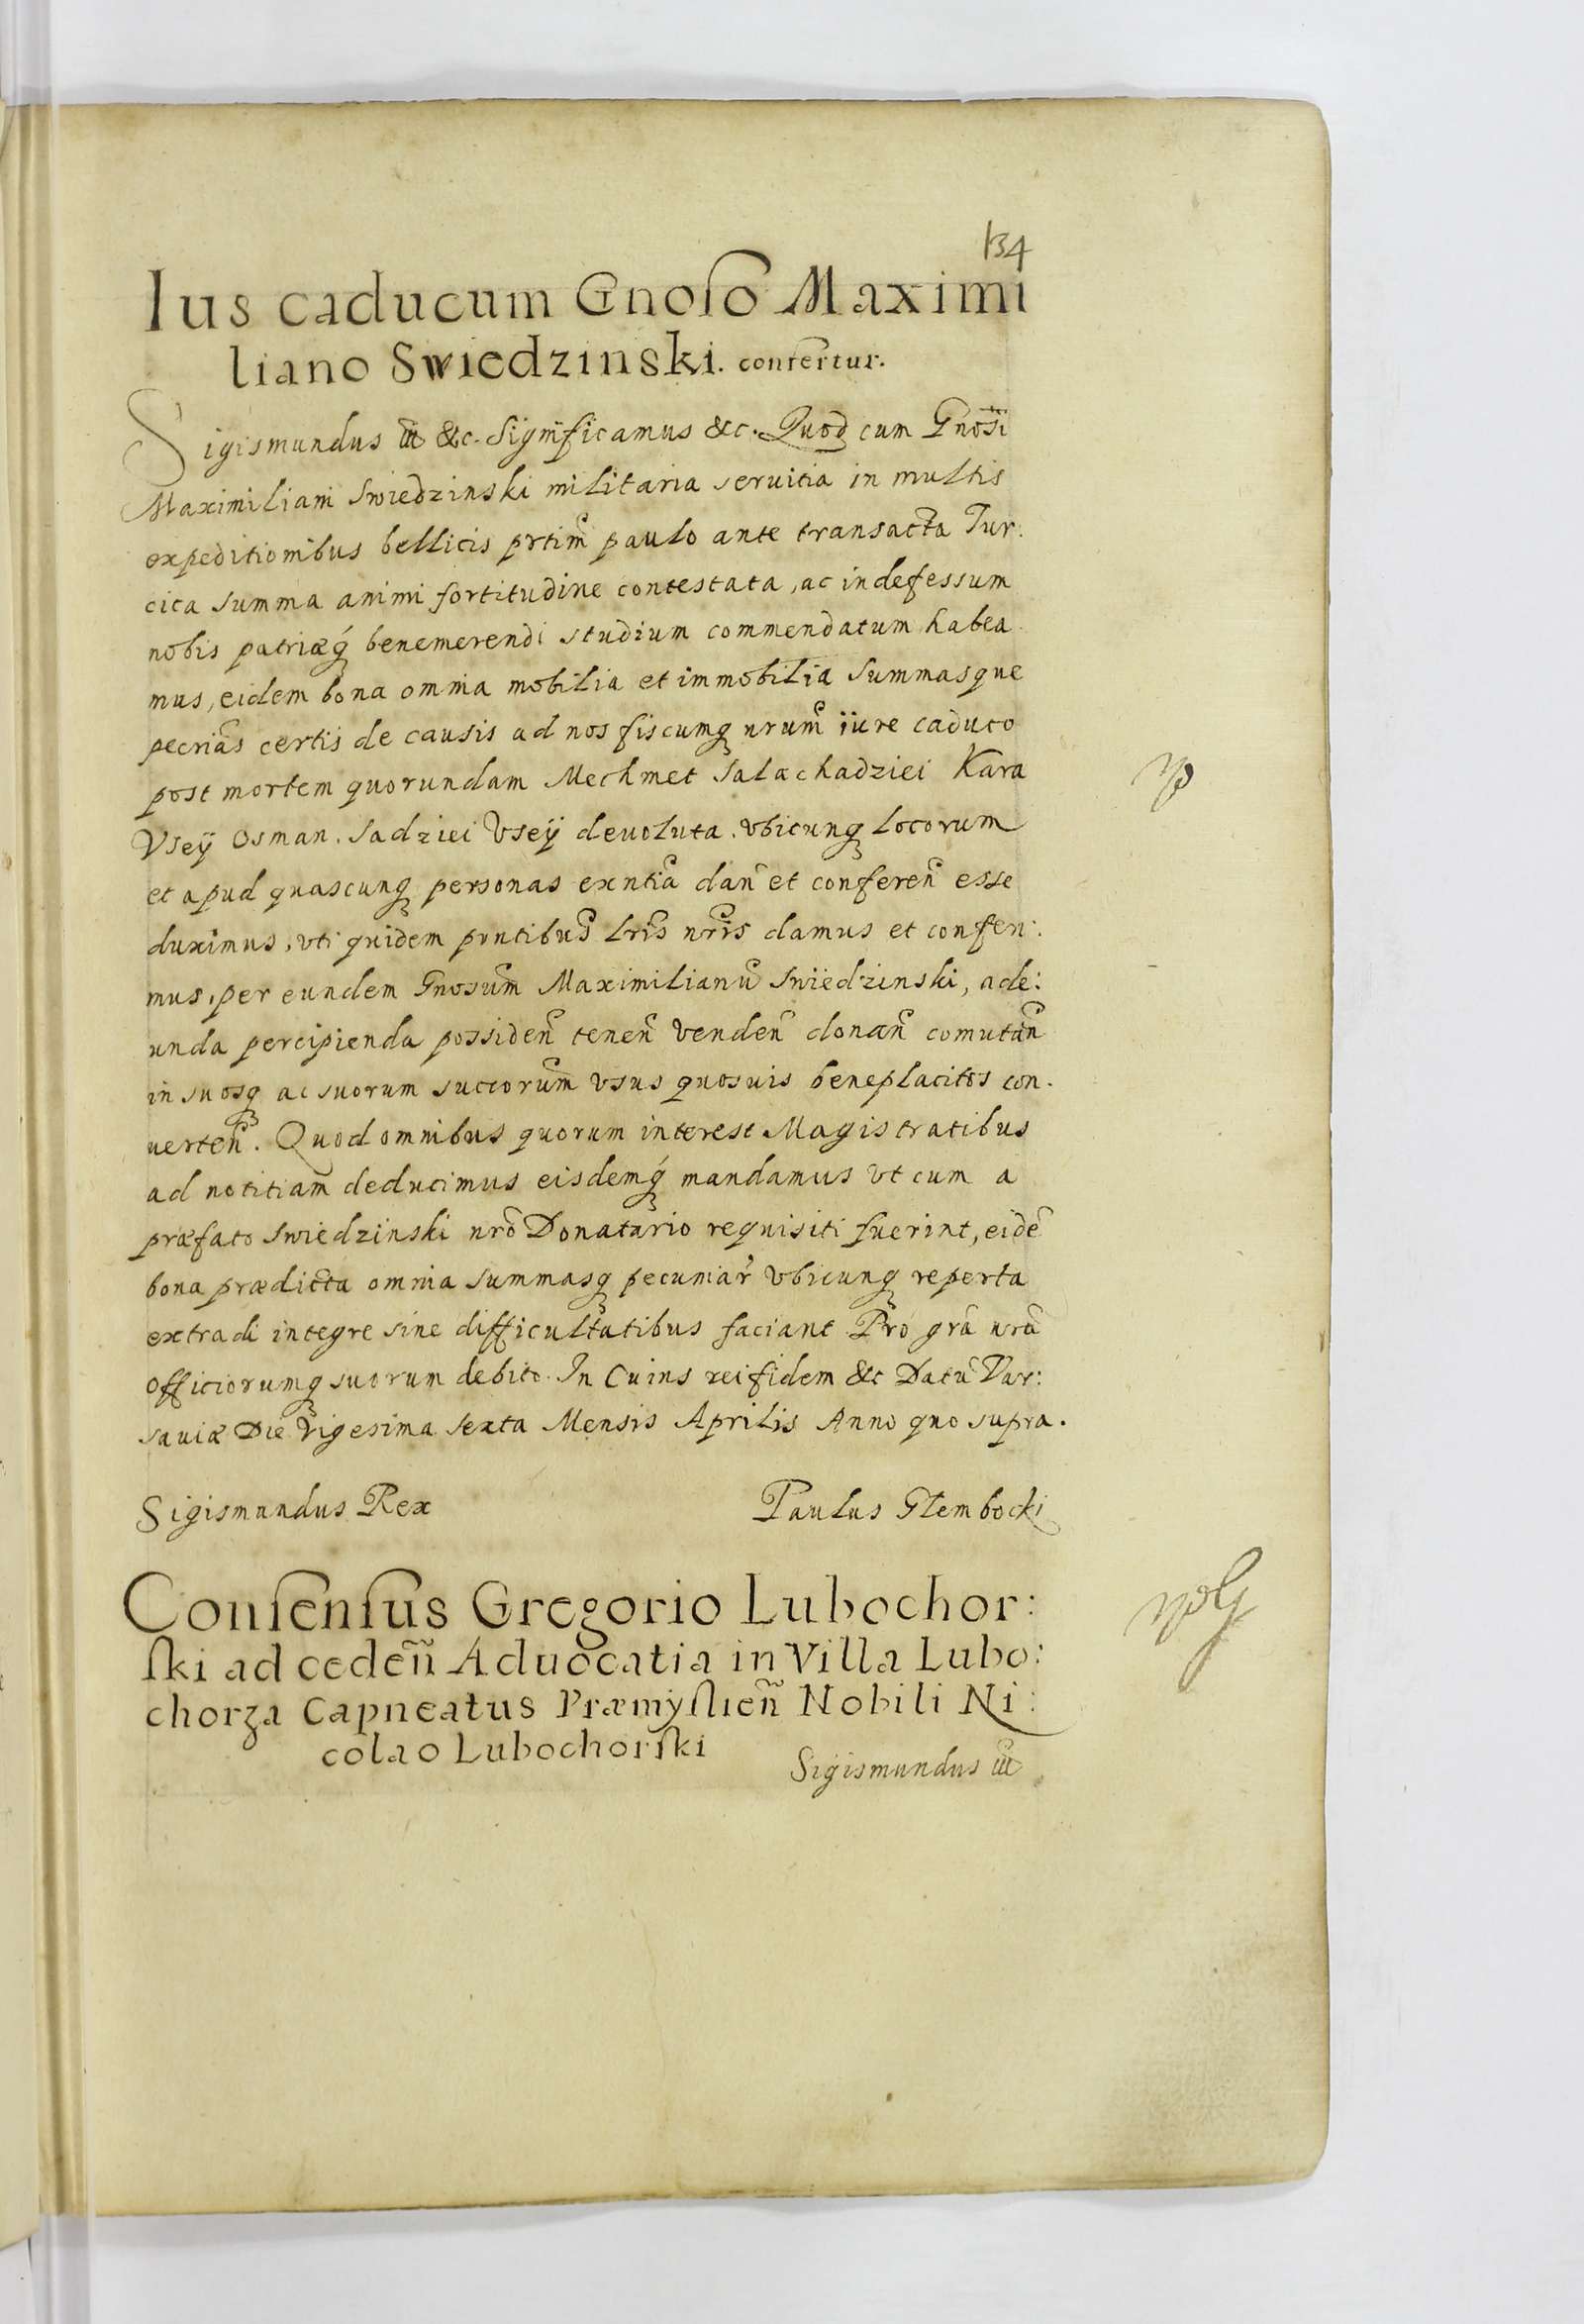 134
Ius caducum Gnoso Maximi
liano Swiedzinski. confertur.
Sigismundus iii &c. Significamus &c. Quod cum Gnosi
Maximiliani Swiedzinski militaria seruitia in multis
expeditionibus bellicis prtim paulo ante transacta Tur:
cica summa animi fortitudine contestata, ac indefessum
nobis patriæq́ benemerendi studium commendatum habea
mus, eidem bona omnia mobilia et immobilia Summasque
pecrias certis de causis ad nos fiscumq nrum iure caduco
post mortem quorundam Mechmet Salachadziei Kara
Vseÿ Osman. Sadziei Vseÿ deuoluta. vbicunq locorum
et apud quascunq personas exntia dan̄ et conferen̄ esse
duximus, vti quidem pntibus lris nris damus et conferi:
mus, per eundem Gnosum Maximilianū Swiedzinski, ade:
unda percipienda possiden̄ tenen̄ venden̄ donan̄ comutan̄
in suosq ac suorum succorum vsus quosuis beneplacitos con.
uerten̄. Quod omnibus quorum interest Magistratibus
ad notitiam deducimus eisdemq́ mandamus vt cum a
præfato Swiedzinski nrō Donatario requisiti fuerint, eidē
bona prædicta omnia summasq pecuniar̄ vbicunq reperta
extradi integre sine difficultatibus faciant Pro grā nrā
officiorumq suorum debito. In Cuius rei fidem &c Datū Var:
sauiæ Die Vigesima sexta Mensis Aprilis Anno quo supra.
Sigismundus Rex Paulus Glembocki
Consensus Gregorio Lubochor:
ski ad ceden̄ Aduocatia in Villa Lubo:
chorza Capneatus Præmÿslien̄ Nobili Ni:
colao Lubochorski
Sigismundus iii